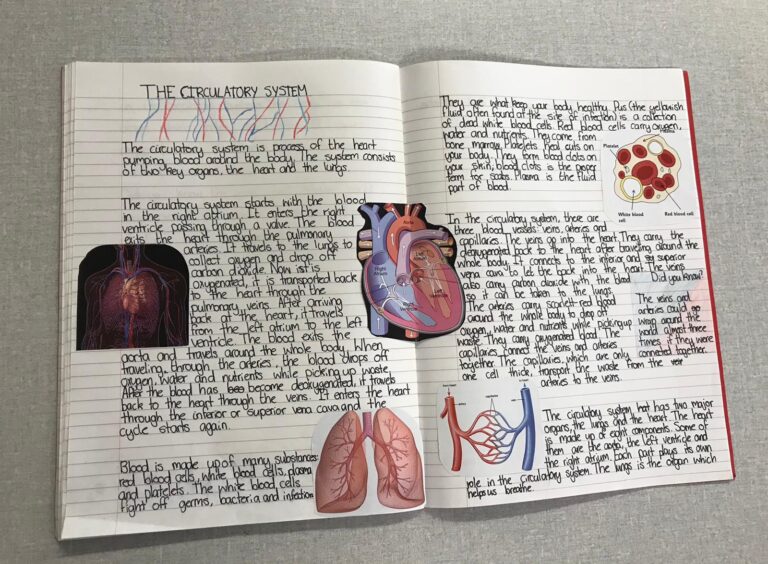 THE CIRCULATORY SYSTEM
The circulatory system is process of the heart
pumping blood around the body. The system consists
of two key organs, the heart and the lungs
The circulatory system starts with the blood
in the right atrium. It enters the right
ventricle passing through a valve. The blood
exits the heart through the pulmonary
arteries travels to the lungs to
collect oxygen and drop off
carbon dioxide. Now ist is
oxygenated, it is transported back
to the heart through the
pulmonary veins. After arriving
back at the heart, it travels
from the left atrium to the left
ventricle. The blood exits the
aorta and travels around the whole body. When
traveling through the arteries, the blood drops off
oxygen, water and nutrients while picking up waste.
After the blood has become deoxygenated, it travels
back to the heart through the veins. It enters the heart
through the interior or superior vena cava and the
cycle starts again.
Blood is made up of many substances:
red blood cells, white blood cells, plasma
and platelets. The white blood cells
fight off germs, bacteria and infection
They are what keep your body healthy. Pus (the yellowish
fluid often found at the site of infection) is a collection
of, dead white blood cells. Red blood cells carry oxygen,
water and nutrients. They come from
bone marrow. Platelets heal cuts on
your body. They form blood clots on
your skin, blood clots is the proper
term for scabs. Plasma is the fluid
part of blood.
Plasma
Platelet
White blood
cell
Red blood cell
In the circulatory system, there are
three blood vessels veins, arteries and
capillaries. The veins go into the heart. They carry the
deoxygenated back to the heart after traveling around the
whole body. It connects to the inferior and superior
vena cava to let the back into the heart. The veins
also carry carbon dioxide with the blood
so it can be taken to the lungs.
The arteries carry scarlet-red blood
around the whole body to drop off
oxygen, water and nutrients while picking up
waste. They carry oxygenated blood. The
capillaries connect the veins and arteries
together. The capillaries, which are only
one cell thick, transport the waste from the
arteries to the veins.
Did you know?
The veins and
arteries could go
wrap around the
world almost three
times if they were
connected together.
Aorta
Right
Atrium
Right
Ventricle
The circulatory system that has two major
organs, the lungs and the heart. The heart
is made up of eight components. Some of
them are the aorta, the left ventricle and
the right atrium. Each part plays its own
role in the circulatory system. The lungs is the organ which
helps us breathe.